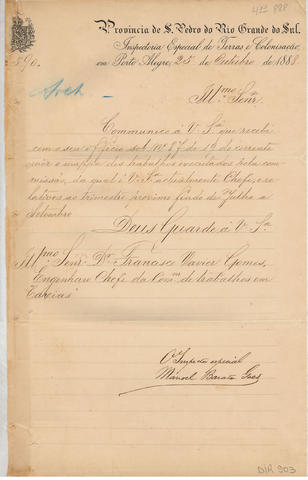 411 888
Provincia de S. Pedro do Rio Grande do Sul.
Inspectoria Especial de Terras e Colonisação,
em Porto Alegre, 25 de Outubro de 1888
Nº
Illmo Senr.
Communico a V. Sª que recebi
com o seu officio sob nº 87 de 19 do corrente
mez o mappa dos trabalhos executados pela com-
missão, da qual é V. Sª actualmente Chefe, e re-
lativos ao trimestre proximo findo de Julho a
Setembro
Deus Guarde a V. Sª
Illmo Senr. Dr. Francisco Xavier Gomes,
Engenheiro Chefe da Comm. de trabalhos em
Caxias
O Inspector especial
Manoel Barata Góes
DIR 903